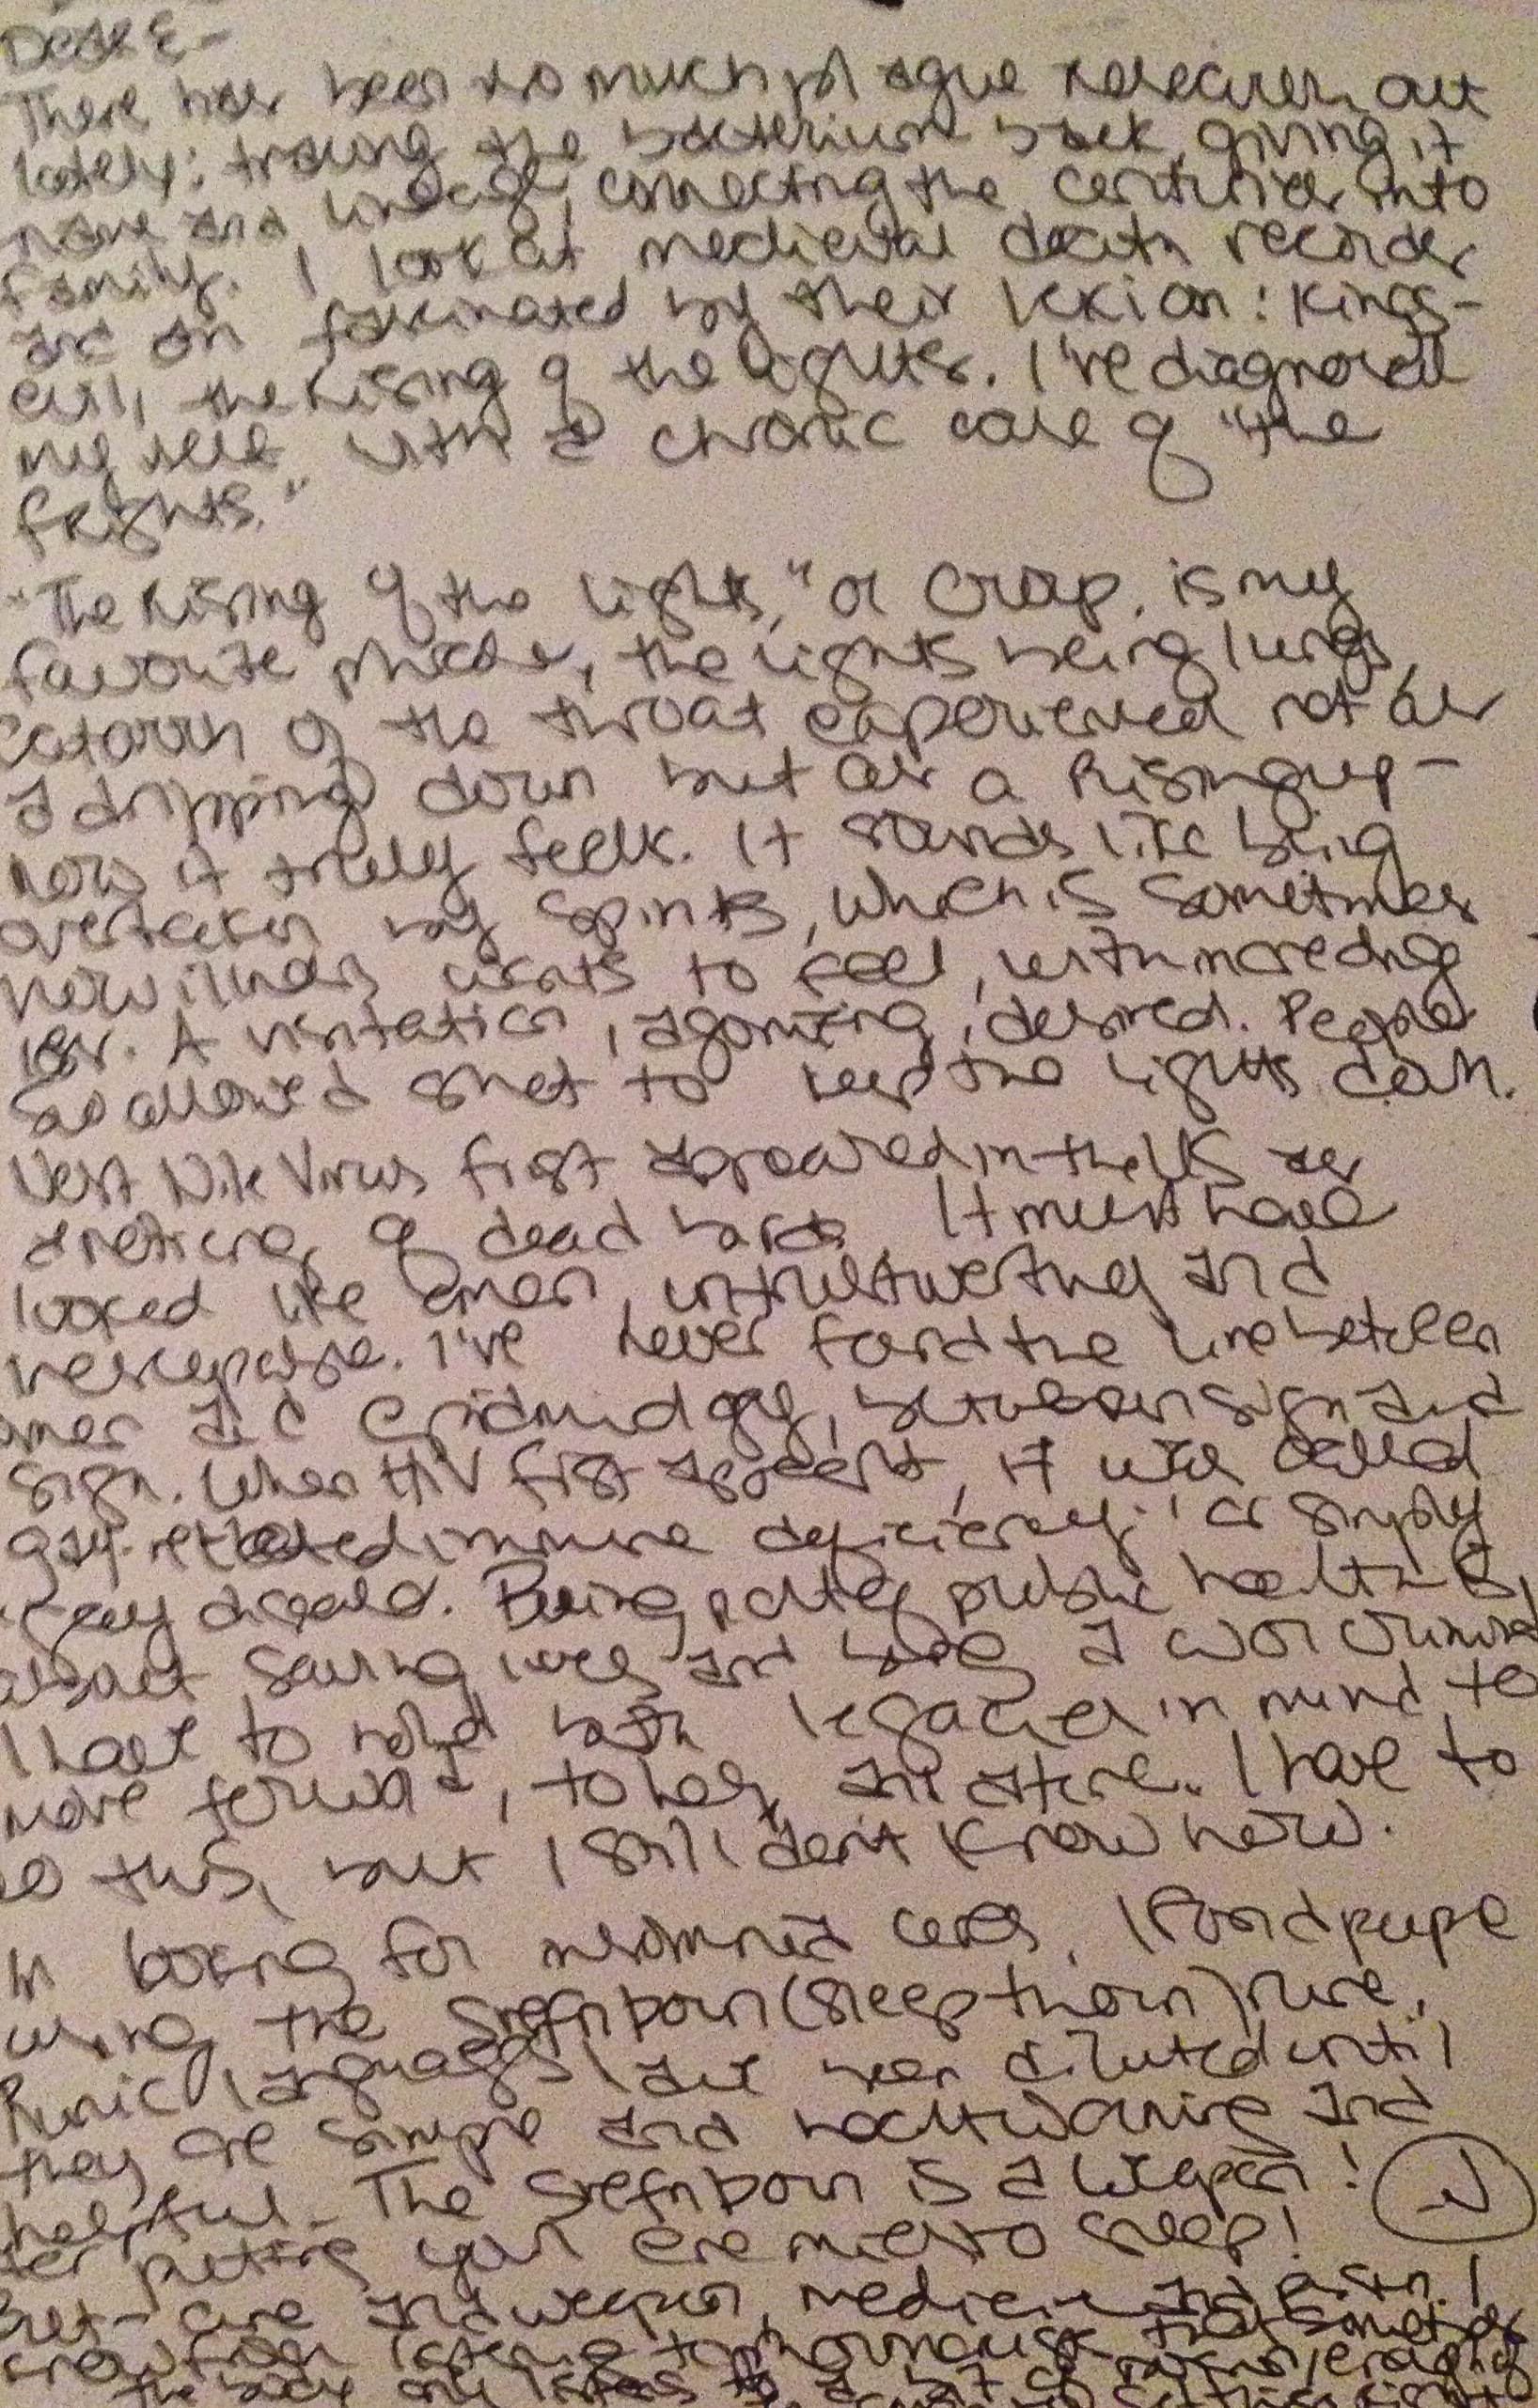 Dear E-
There has been so much plague research out
lately: tracing the bacterium back, giving it
name and lineage, connecting the centuries into
family. I look at medieval death records
and am fascinated by their lexicon: kings-
evil, the Rising of the Lights. I've diagnosed
my self with a chronic case of "the
frights."
"The Rising of the Lights," or Croup, is my
favourite phrase, the lights being lungs,
catarrh of the throat experienced not as
a dripping down but as a Rising up-
how it truly feels. It sounds like being
overtaken by spirits, which is sometimes
how illness wants to feel, with incredible
A visitation, agonizing, desired. People
swallowed shot to keep the lights down.
West Nile Virus first appeared in the US as
a dead birds. It must have
looked like omen, untrustworthy and
inescapable. I've never found the line between
omen and epidemiology, between sign and
sign. When HIV first appeared, it was called
gay-related immune deficiency; or simply
"gay disease." Being public health is
about saving lives and being a
I have to hold both legacies in mind to
move forward, to heal, and I have to
do this, but I still don't know how.
In looking for insomnia cures, I found people
using the Svefnþorn (sleep thorn) rune.
Runic languages have been diluted until
they are simple and heartwarming and
helpful. The Svefnþorn is a weapon!
for putting your enemies to sleep!
But- cure and weapon, medicine and poison. I
know from listening to that sometimes
the body only listens to a bit of